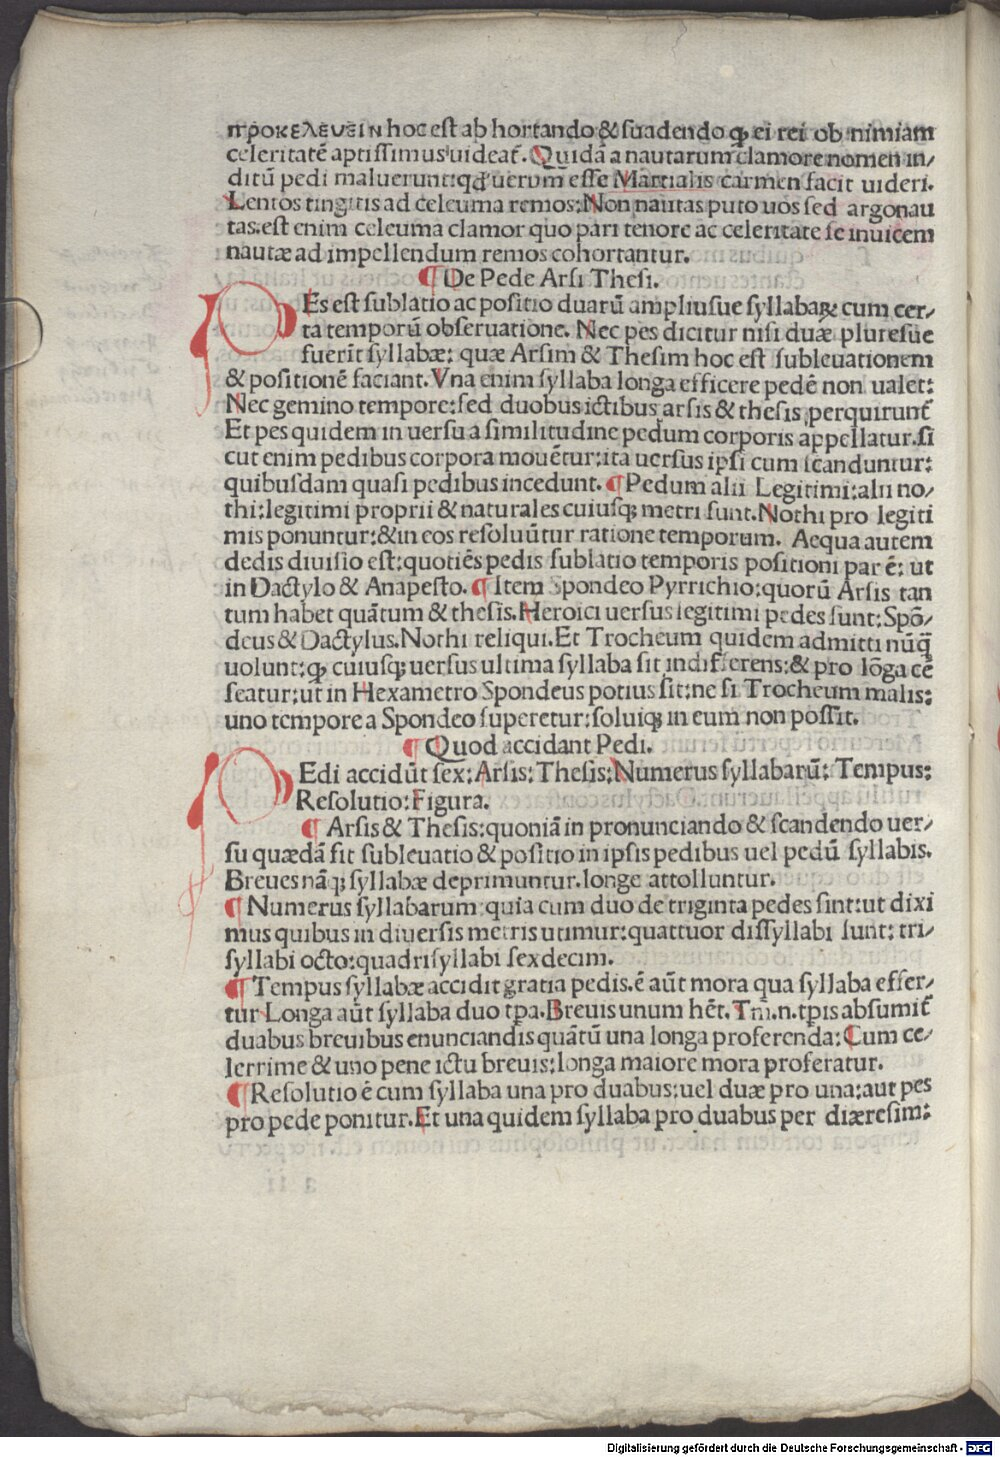 προκελευειν hoc eſt ab hortando & ſuadendo ꝙ ei rei ob nimiam
celeritatē aptiſſimus uideat̃. Quidã a nautarum clamore nomen in/
ditũ pedi maluerunt:qđ uerum eſſe Martialis carmen facit uideri.
Lentos tingitis ad celeuma remos:Non nautas puto uos ſed argonau
tas:eſt enim celeuma clamor quo pari tenore ac celeritate ſe inuicem
nautæ ad impellendum remos cohortantur.
¶ De Pede Arſi Theſi.
PEs eſt ſublatio ac poſitio duarũ ampliuſue ſyllabaꝝ cum cer/
ta temporũ obſeruatione. Nec pes dicitur niſi duæ plureſue
fuerĩt ſyllabæ: quæ Arſim & Theſim hoc eſt ſubleuationem
& poſitionē faciant. Vna enim ſyllaba longa efficere pedē non ualet:
Nec gemino tempore:ſed duobus ictibus arſis & theſis perquirunt̃
Et pes quidem in uerſu a ſimilitudine pedum corporis appellatur.ſi
cut enim pedibus corpora mouētur:ita uerſus ipſi cum ſcanduntur:
quibuſdam quaſi pedibus incedunt. ¶ Pedum alii Legitimi:alii no/
thi:legitimi proprii & naturales cuiuſq; metri ſunt.Nothi pro legiti
mis ponuntur:& in eos reſoluũtur ratione temporum. Aequa autem
dedis diuiſio eſt:quotiēs pedis ſublatio temporis poſitioni par ē: ut
in Dactylo & Anapeſto. ¶ Item Spondeo Pyrrichio:quorũ Arſis tan
tum habet quãtum & theſis.Heroici uerſus legitimi pedes ſunt:Spõ/
deus & Dactylus.Nothi reliqui.Et Trocheum quidem admitti nũq̃
uolunt:ꝙ cuiuſq; uerſus ultima ſyllaba ſit indifferens:& pro lõga cē
ſeatur:ut in Hexametro Spondeus potius ſit:ne ſi Trocheum malis:
uno tempore a Spondeo ſuperetur:ſoluiq; in eum non poſſit.
¶ Quod accidant Pedi.
PEdi accidũt ſex:Arſis:Theſis:Numerus ſyllabarũ: Tempus:
Reſolutio:Figura.
¶ Arſis & Theſis:quoniã in pronunciando & ſcandendo uer/
ſu quædã fit ſubleuatio & poſitio in ipſis pedibus uel pedũ ſyllabis.
Breues nãq; ſyllabæ deprimuntur.longe attolluntur.
¶ Numerus ſyllabarum:quia cum duo de triginta pedes ſint:ut dixi
mus quibus in diuerſis metris utimur:quattuor diſſyllabi ſunt: tri/
ſyllabi octo:quadriſyllabi ſexdecim.
¶ Tempus ſyllabæ accidit gratia pedis.ē aũt mora qua ſyllaba effer/
tur Longa aũt ſyllaba duo tp̃a.Breuis unum hēt. Tm̃.n.tp̃is abſumit̃
duabus breuibus enunciandis quãtũ una longa proferenda:Cum ce/
lerrime & uno pene ictu breuis:longa maiore mora proferatur.
¶ Reſolutio ē cum ſyllaba una pro duabus:uel duæ pro una:aut pes
pro pede ponitur.Et una quidem ſyllaba pro duabus per diæreſim:
Digitalisierung gefördert durch die Deutsche Forschungsgemeinschaft - DFG